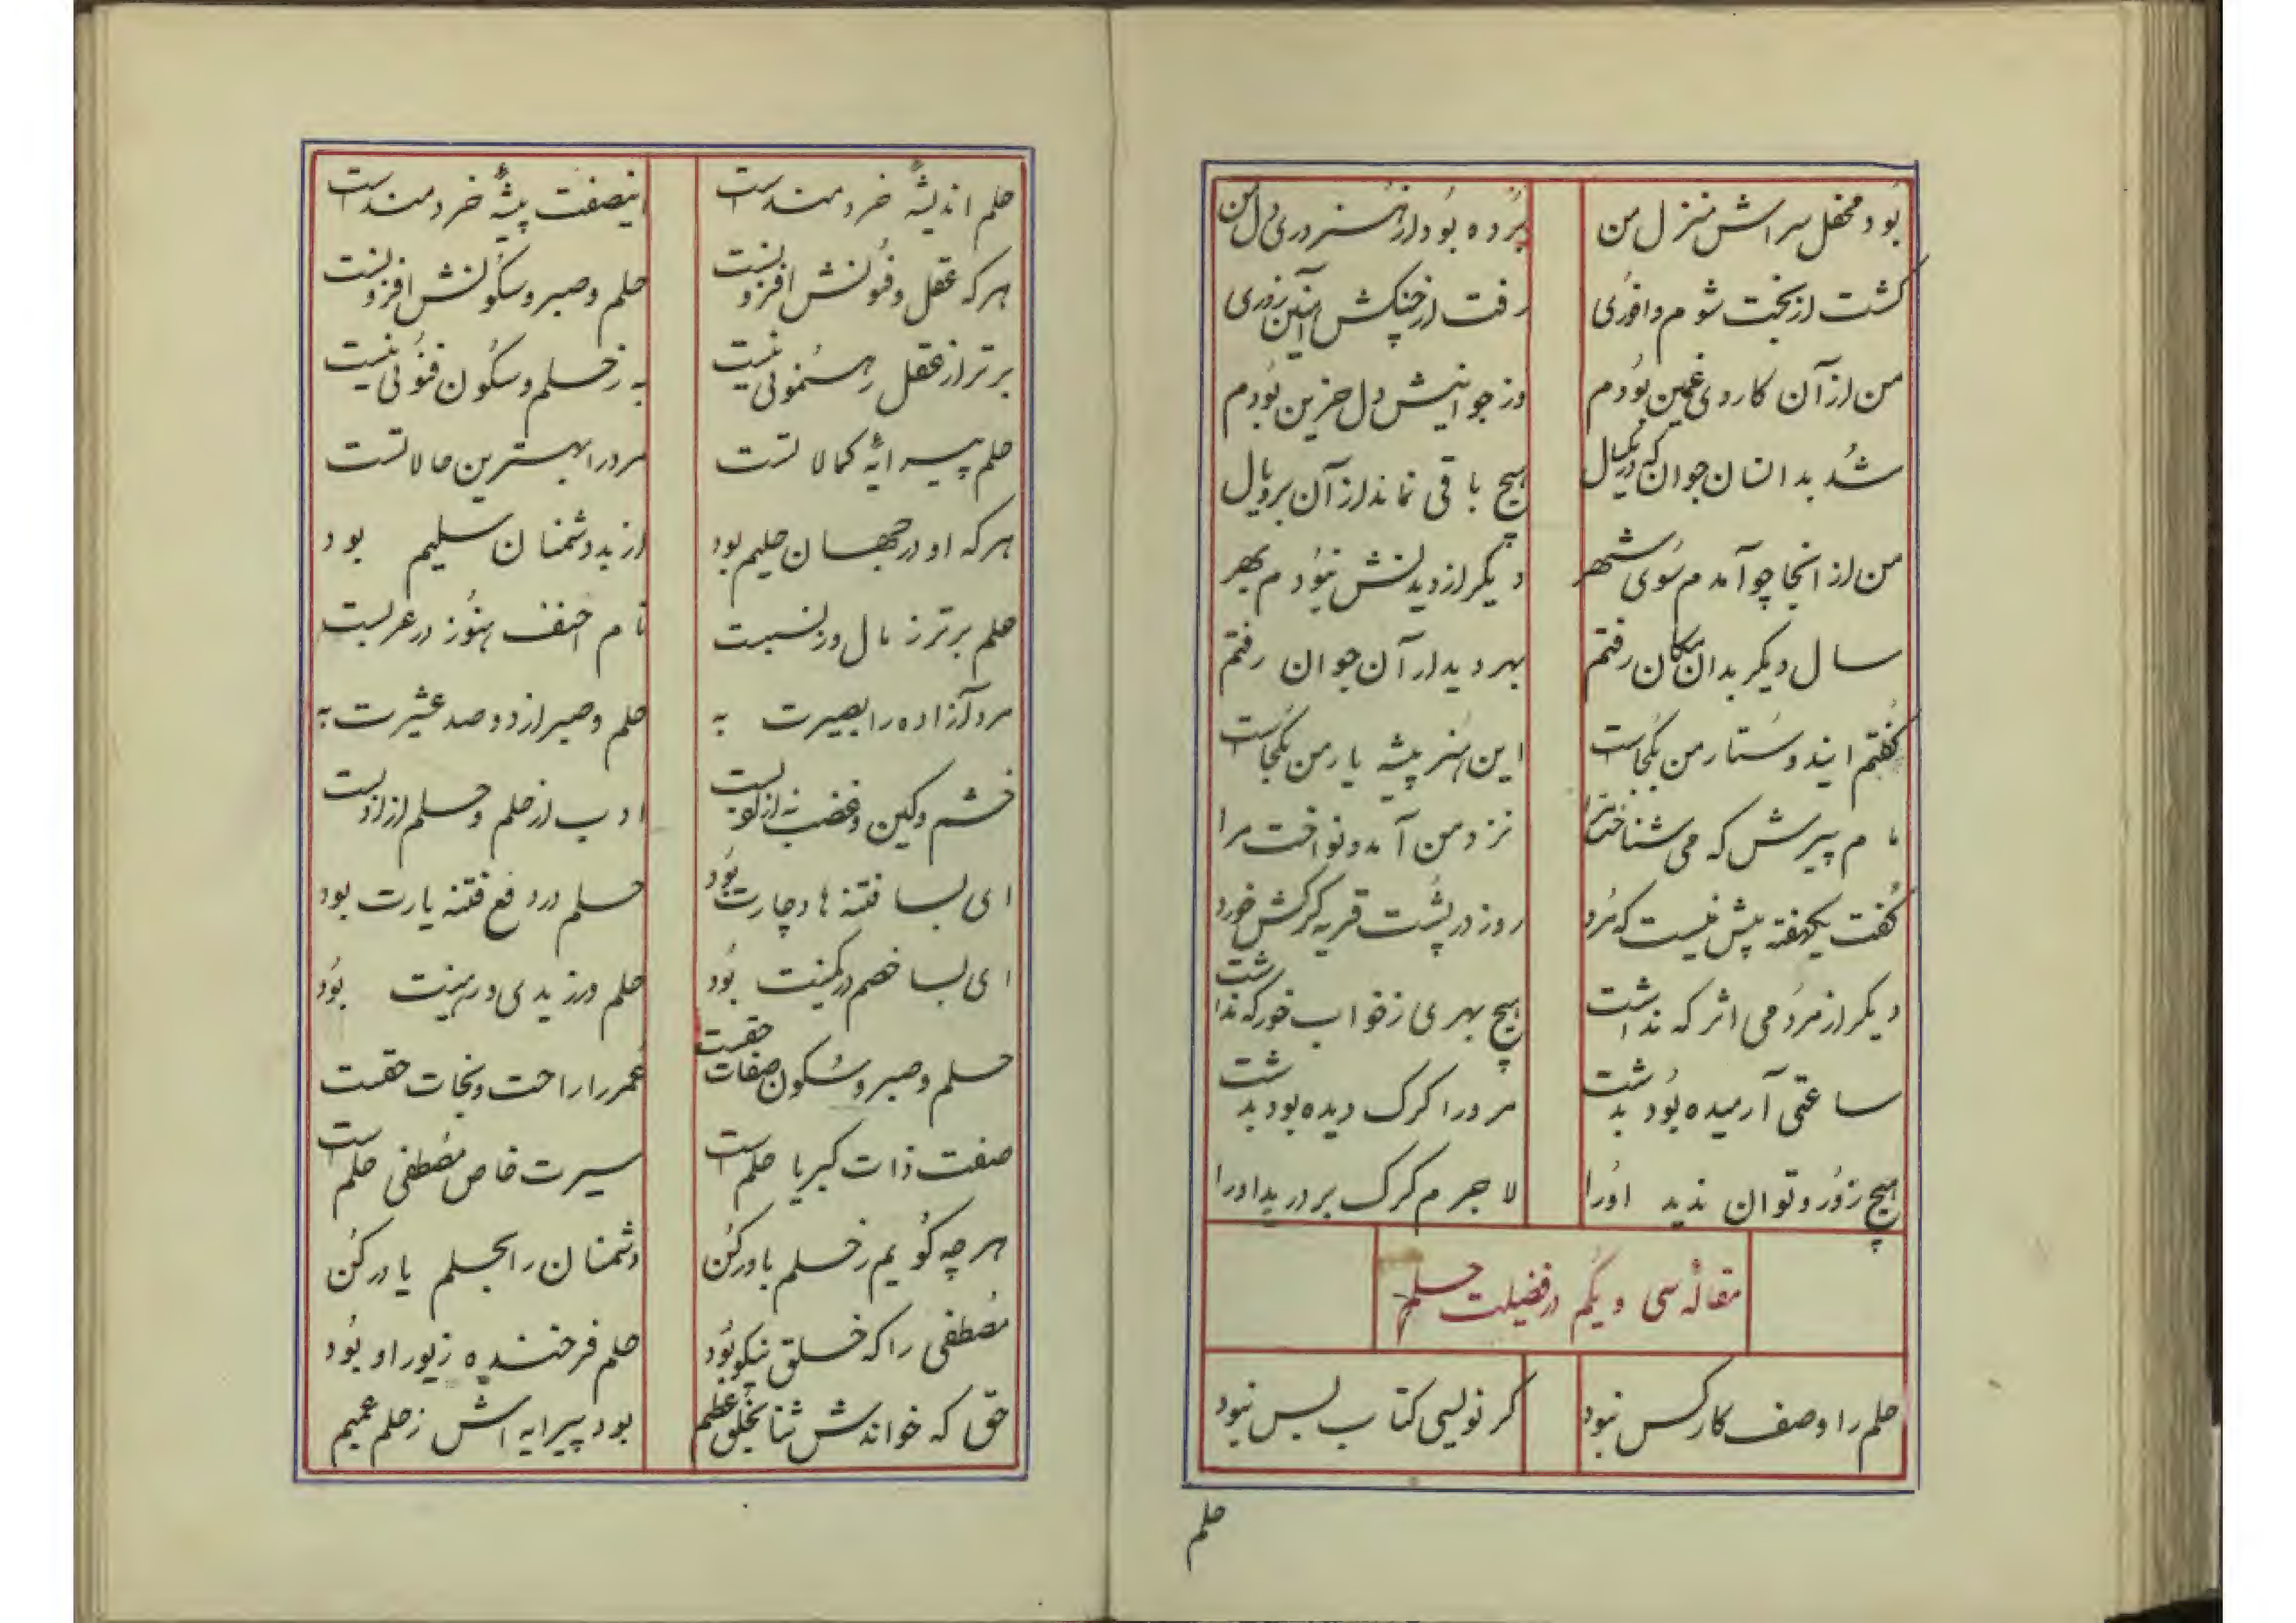 بود محفل سراش منزل من برده بود از هنروری دل من
گشت از بخت شوم و افزی رفت از چنگش آنهن زوری
من از آن کار وی غمین بودم وز جوانیش دل حزین بودم
شد بدانسان جوان که در یکسال هیچ باقی نماند از آن بر و یال
من از انجا چو آمدم سوی شهر دیگر از دیدنش نبودم بهر
سال دیگر بدان مکان رفتم بهر دیدار آن جوان رفتم
گفتم ایندوستار من بکجاست این هنر پیشه یار من بکجاست
مام پیرش که می شناخت مرا نزد من آمد و نواخت مرا
گفت یکهفته پیش نیست که مرد روز در پشت قریه گرگش خورد
دیگر از مردمی اثر که نداشت هیچ بهری ز خواب خور که نداشت
ساعتی آرمیده بود بدشت مرورا گرگ دیده بود بدشت
هیچ زور و توان ندید اورا لاجرم گرگ بر درید اورا
مقاله سی و یکم در فضیلت حلم
حلم را وصف کار کس نبود گر نویسی کتاب بس نبود
حلم
حلم اندیشهٔ خردمند است اینصفت پیشهٔ خردمند است
هر که عقل و فنونش افزونست حلم و صبر و سکونش افزونست
برتر از عقل رهنمونی نیست به ز حلم و سکون فنونی نیست
حلم پیرایهٔ کمالاتست مرد را بهترین حالاتست
هر که او در جهان حلیم بود از بد دشمنان سلیم بود
حلم برتر ز مال وز نسبت نام احنف هنوز در عربست
مرد آزاده را بصیرت به حلم و صبر از دو صد عشیرت به
خشم و کین و غضب نه از ادبست ادب از حلم و حلم از ادبست
ای بسا فتنه ها دچارت بود حلم در دفع فتنه یارت بود
ای بسا خصم در کمینت بود حلم ورزیدی و رهینت بود
حلم و صبر و سکون صفات حقست عمر را راحت و نجات حقست
صفت ذات کبریا حلم است سیرت خاص مصطفی حلم است
هر چه گویم ز حلم باور کن دشمنان را بحلم یاور کن
مصطفی را که خلق نیکو بود حلم فرخنده زیور او بود
حق که خواندش ثنا بخلق عظیم بود پیرایه اش ز حلم عمیم